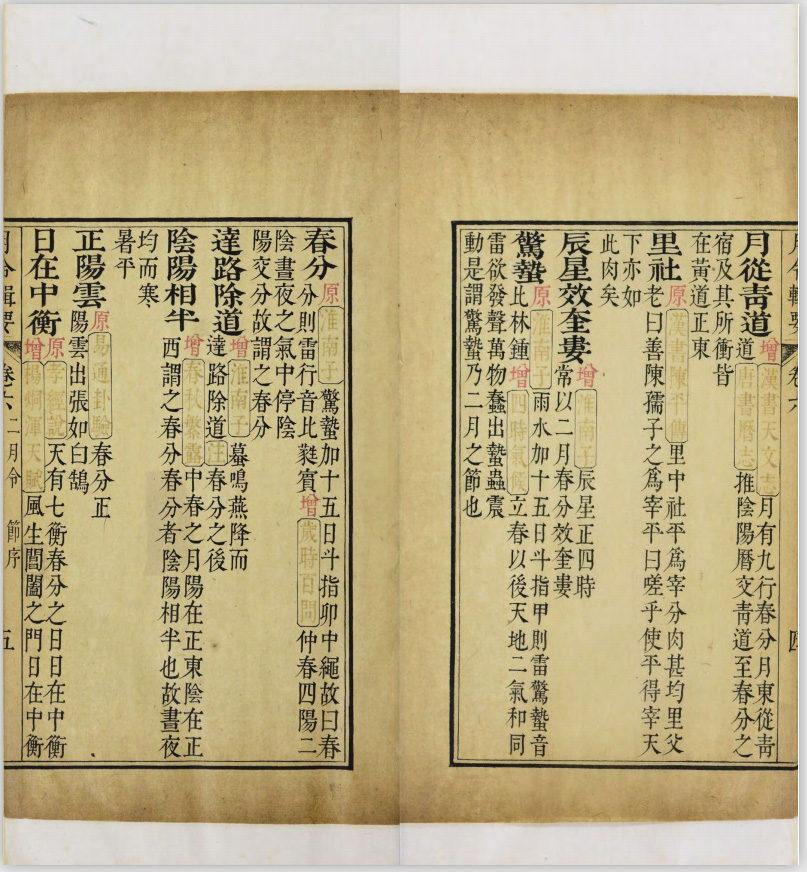 月從靑道
增漢書天文志月有九行春分月東從靑
道唐書曆志推陰陽曆交靑道至春分之
宿及其所衝皆
在黃道正東
里社
原漢書陳平傳里中社平爲宰分肉甚均里父
老曰善陳孺子之爲宰平曰嗟乎使平得宰天
下亦如
此肉矣
辰星效奎婁
增淮南子辰星正四時
常以二月春分效奎婁
驚蟄
原淮南子雨水加十五日斗指甲則雷驚蟄音
比林鍾增四時氣候立春以後天地二氣和同
雷欲發聲萬物蠢出蟄蟲震
動是謂驚蟄乃二月之節也
春分
原淮南子驚蟄加十五日斗指卯中繩故曰春
分則雷行音比蕤賓增歲時百問仲春四陽二
陰晝夜之氣中停陰
陽交分故謂之春分
達路除道
增淮南子蟇鳴燕降而
達路除道注春分之後
陰陽相半
增春秋繁露中春之月陽在正東陰在正
西謂之春分春分者陰陽相半也故晝夜
均而寒
暑平
正陽雲
原易通卦驗春分正
陽雲出張如白鵠
日在中衡
原孝經說天有七衡春分之日日在中衡
增楊烱渾天賦風生閶闔之門日在中衡
月令輯要 卷六 二月令 節序 五